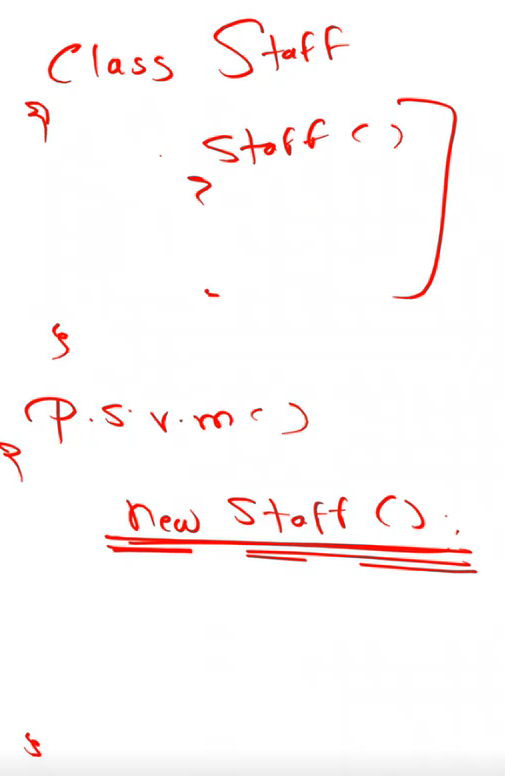 Class Staff
{
Staff ()
{
}
P.S.V.m()
{
new Staff ();
}